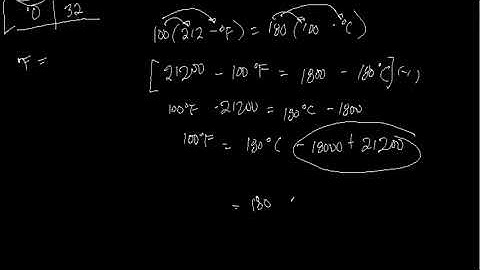 °0 | 32
100(212 - °F) = 180(100 - °C)
°F =
[21200 - 100°F = 1800 - 180°C](-1)
100°F - 21200 = 180°C - 1800
100°F = 180°C - 18000 + 21200
= 180